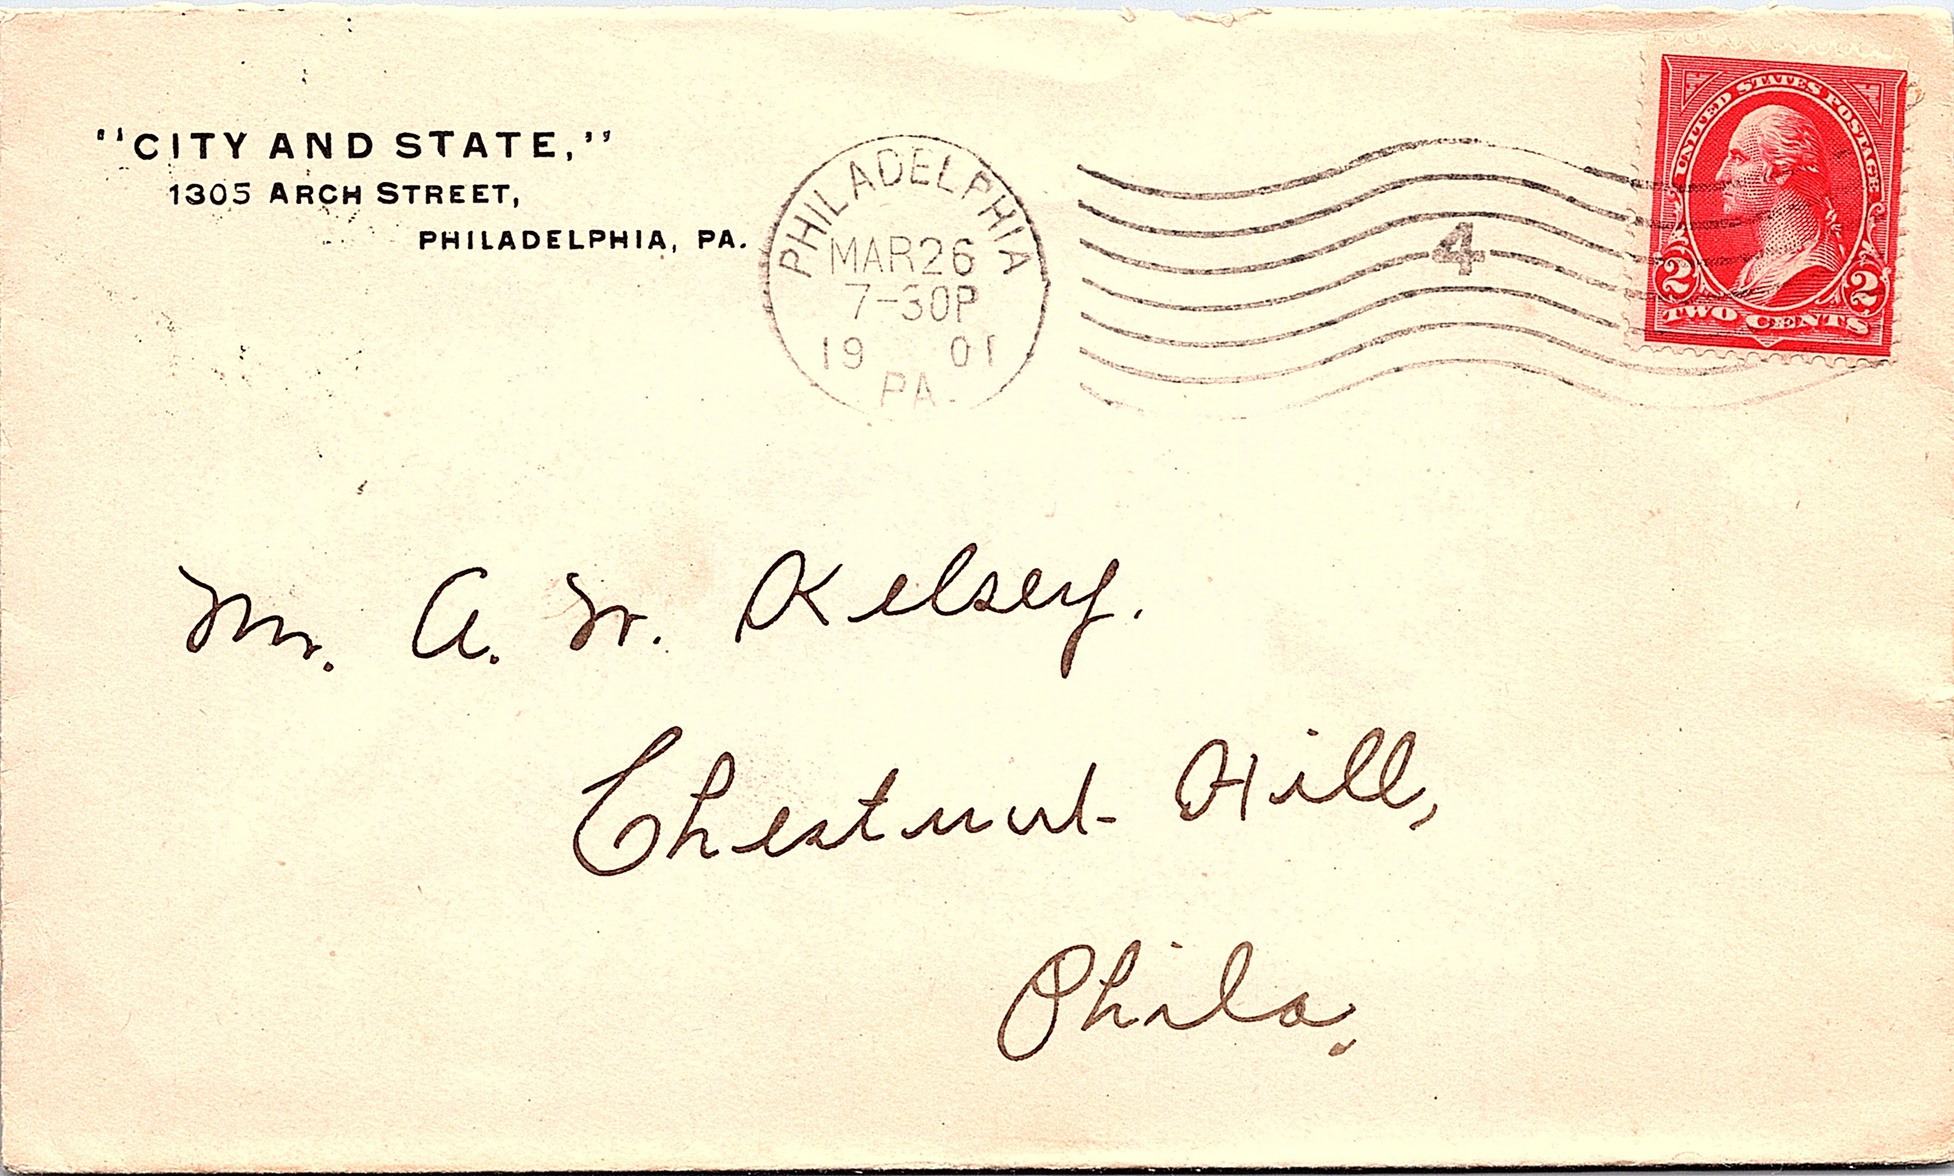 "CITY AND STATE,"
1305 ARCH STREET,
PHILADELPHIA, PA.
PHILADELPHIA
MAR 26
7-30P
19 01
PA.
4
UNITED STATES POSTAGE
2 2
TWO CENTS
Mr. A. W. Kelsey.
Chestnut Hill,
Phila.